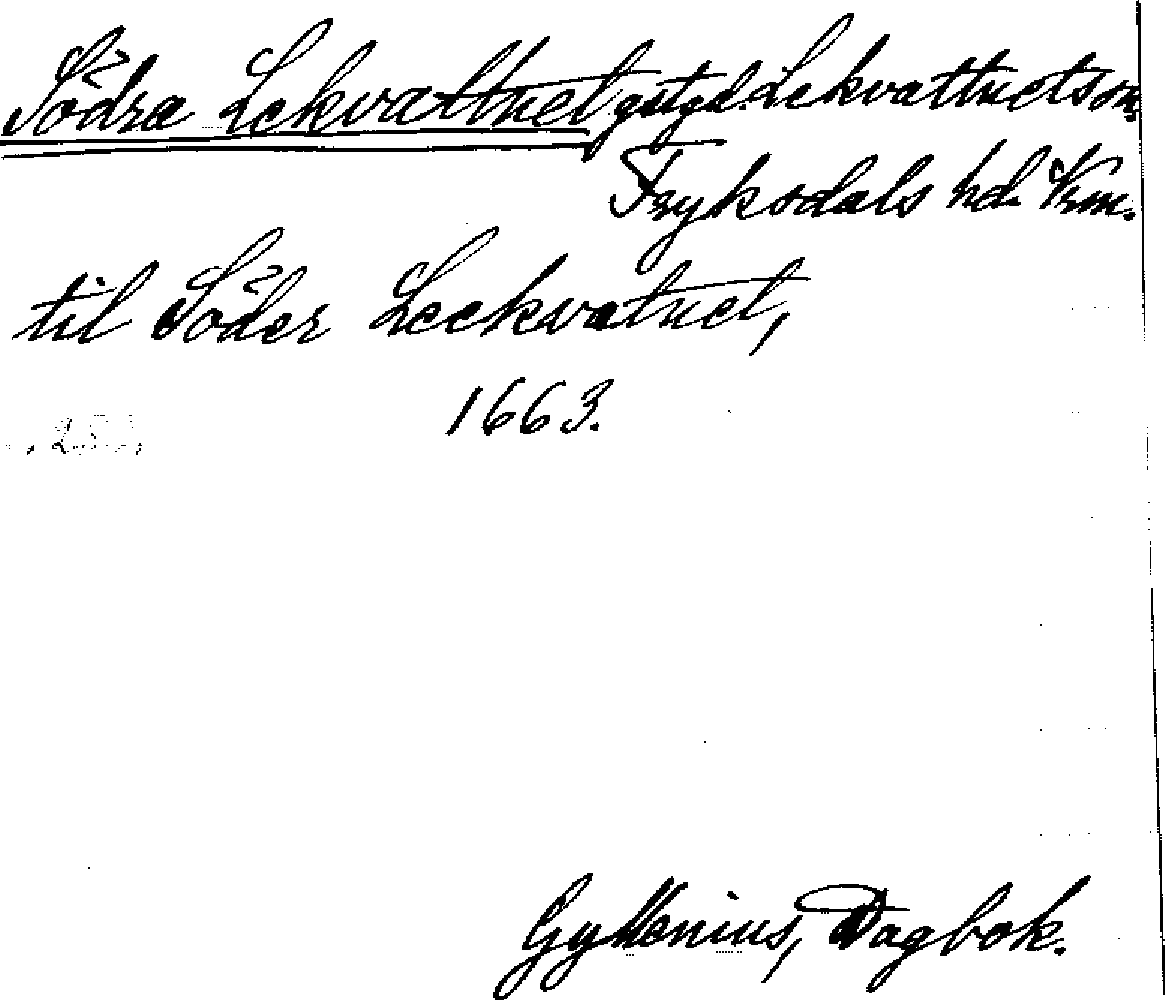 Södra Lekvattnet gstgd. Lekvattnets sn,
Fryksdals hd. Vrm.
til Söder Leekvatnet,
1663.
Gyllenius, Dagbok.